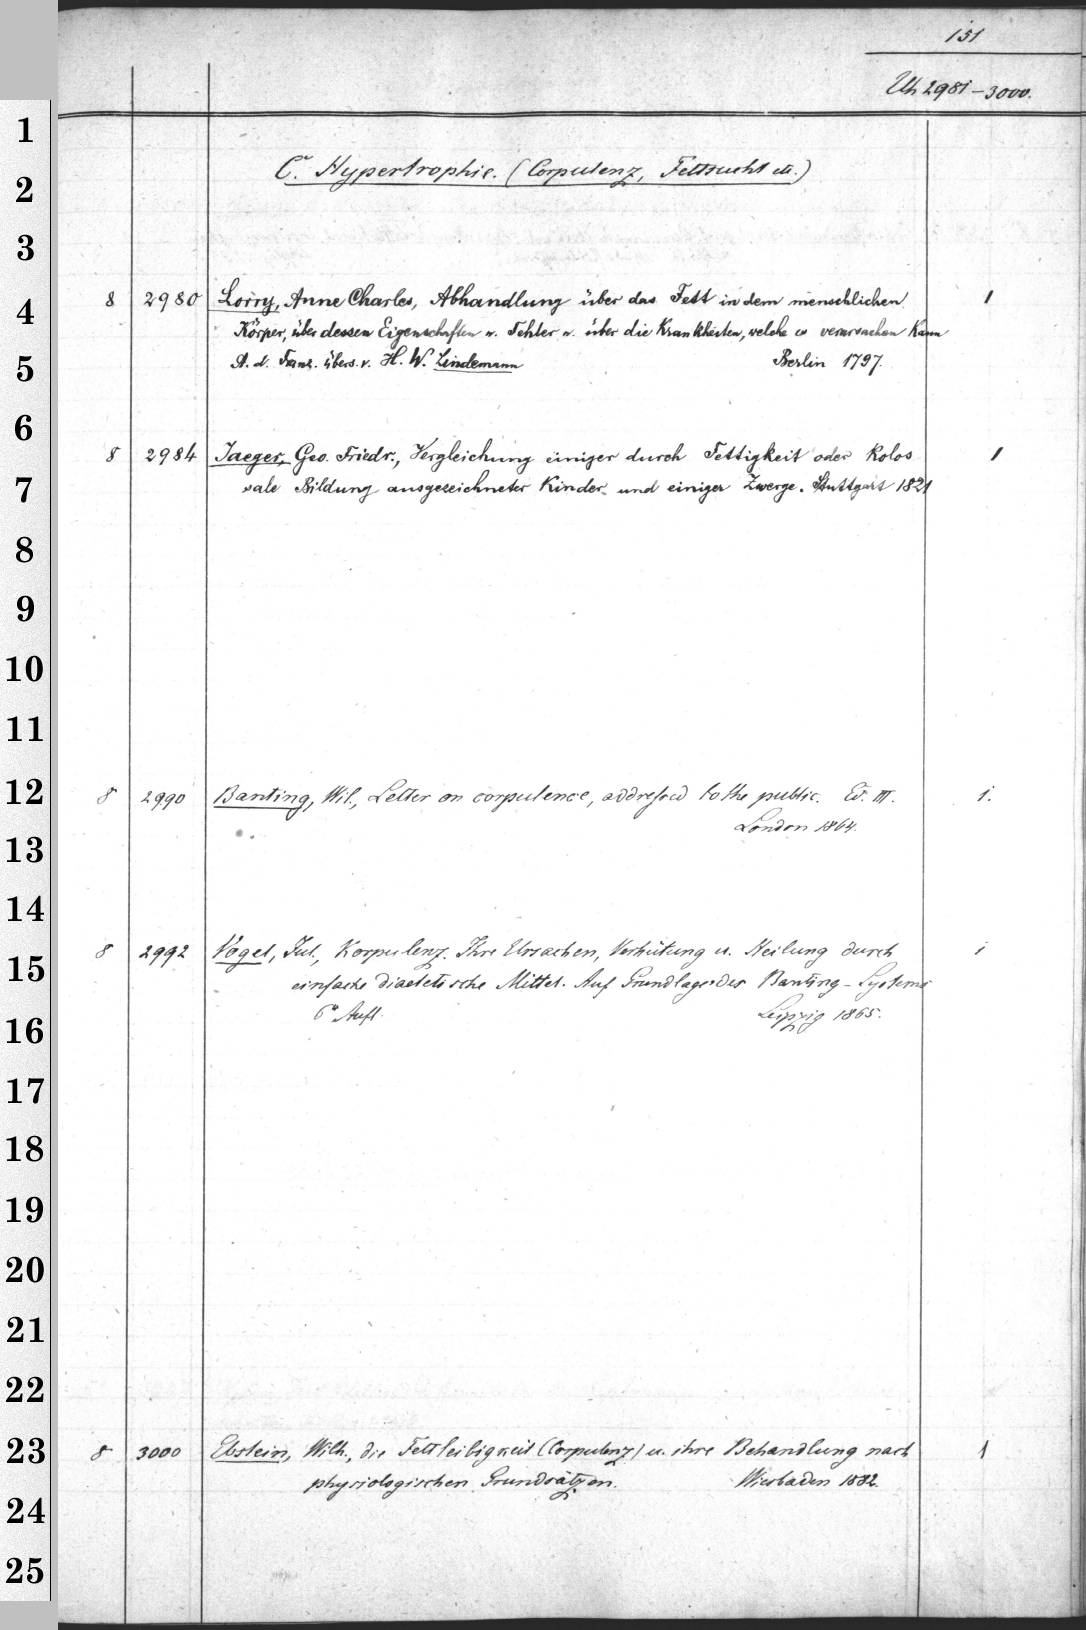 151
Uh 2981-3000.
C. Hypertrophie. (Corpulenz, Fettsucht etc.)
8 2980 Lorry, Anne Charles, Abhandlung über das Fett in dem menschlichen 1
Körper, über dessen Eigenschaften u. Fehler u. über die Krankheiten, welche es verursachen kann
A. d. Franz. übers. v. H. W. Lindemann Berlin 1797.
8 2984 Jaeger, Geo. Friedr., Vergleichung einiger durch Fettigkeit oder kolos 1
sale Bildung ausgezeichneter Kinder und einiger Zwerge. Stuttgart 1821
8 2990 Banting, Wil., Letter on corpulence, addressed to the public. Ed. III. 1.
London 1864.
8 2992 Vogel, Jul., Korpulenz. Ihre Ursachen, Verhütung u. Heilung durch 1
einfache diaetetische Mittel. Auf Grundlage des Banting-Systems
6e Aufl. Leipzig 1865.
8 3000 Ebstein, Wilh., die Fettleibigkeit (Corpulenz) u. ihre Behandlung nach 1
physiologischen Grundsätzen. Wiesbaden 1882.
1
2
3
4
5
6
7
8
9
10
11
12
13
14
15
16
17
18
19
20
21
22
23
24
25